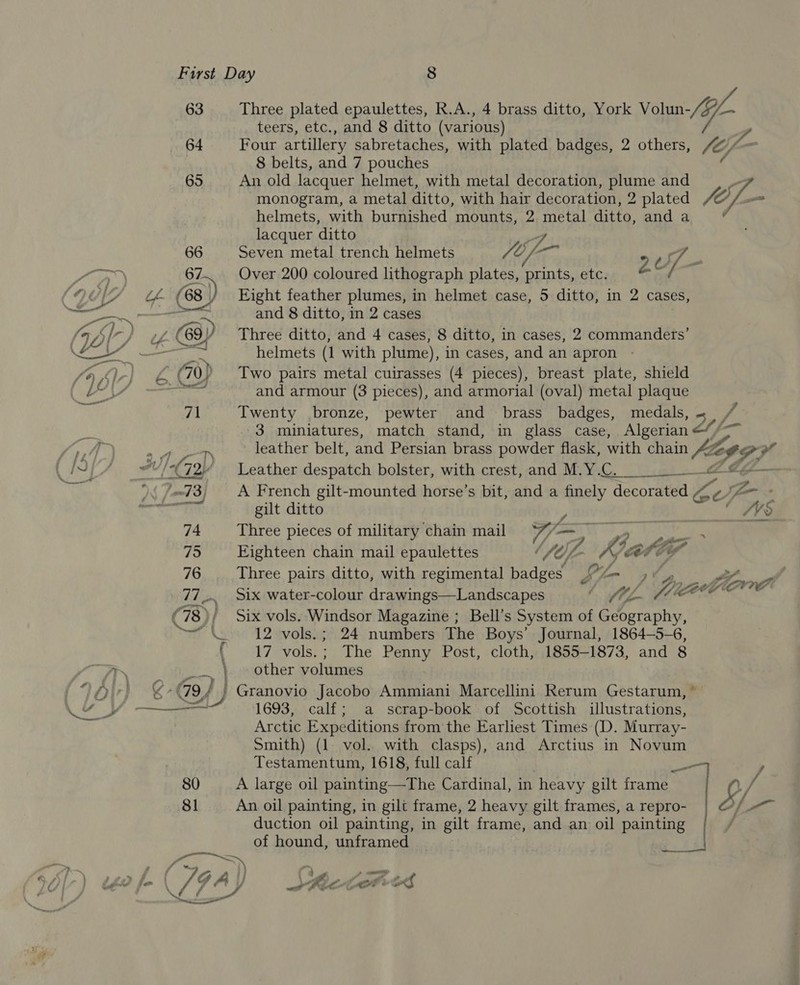 First Day 8
63 Three plated epaulettes, R.A., 4 brass ditto, York Volun-
teers, etc., and 8 ditto (various)
64 Four artillery sabretaches, with plated badges, 2 others,
8 belts, and 7 pouches
65 An old lacquer helmet, with metal decoration, plume and
monogram, a metal ditto, with hair decoration, 2 plated
helmets, with burnished mounts, 2 metal ditto, and a
lacquer ditto
66 Seven metal trench helmets
67 Over 200 coloured lithograph plates, prints, etc.
68 Eight feather plumes, in helmet case, 5 ditto, in 2 cases,
and 8 ditto, in 2 cases
69 Three ditto, and 4 cases, 8 ditto, in cases, 2 commanders'
helmets (1 with plume), in cases, and an apron
70 Two pairs metal cuirasses (4 pieces), breast plate, shield
and armour (3 pieces), and armorial (oval) metal plaque
71 Twenty bronze, pewter and brass badges, medals,
3 miniatures, match stand, in glass case, Algerian
leather belt, and Persian brass powder flask, with chain
72 Leather despatch bolster, with crest, and M.Y.C.
73 A French gilt-mounted horse's bit, and a finely decorated
gilt ditto
74 Three pieces of military chain mail
75 Eighteen chain mail epaulettes
76 Three pairs ditto, with regimental badges
77 Six water-colour drawings—Landscapes
78 Six vols. Windsor Magazine ; Bell's System of Geography,
12 vols. ; 24 numbers The Boys' Journal, 1864-5-6,
17 vols. ; The Penny Post, cloth, 1855-1873, and 8
other volumes
79 Granovio Jacobo Ammiani Marcellini Rerum Gestarum,
1693, calf ; a scrap-book of Scottish illustrations,
Arctic Expeditions from the Earliest Times (D. Murray-
Smith) (1 vol. with clasps), and Arctius in Novum
Testamentum, 1618, full calf
80 A large oil painting—The Cardinal, in heavy gilt frame
81 An oil painting, in gilt frame, 2 heavy gilt frames, a repro-
duction oil painting, in gilt frame, and an oil painting
of hound, unframed